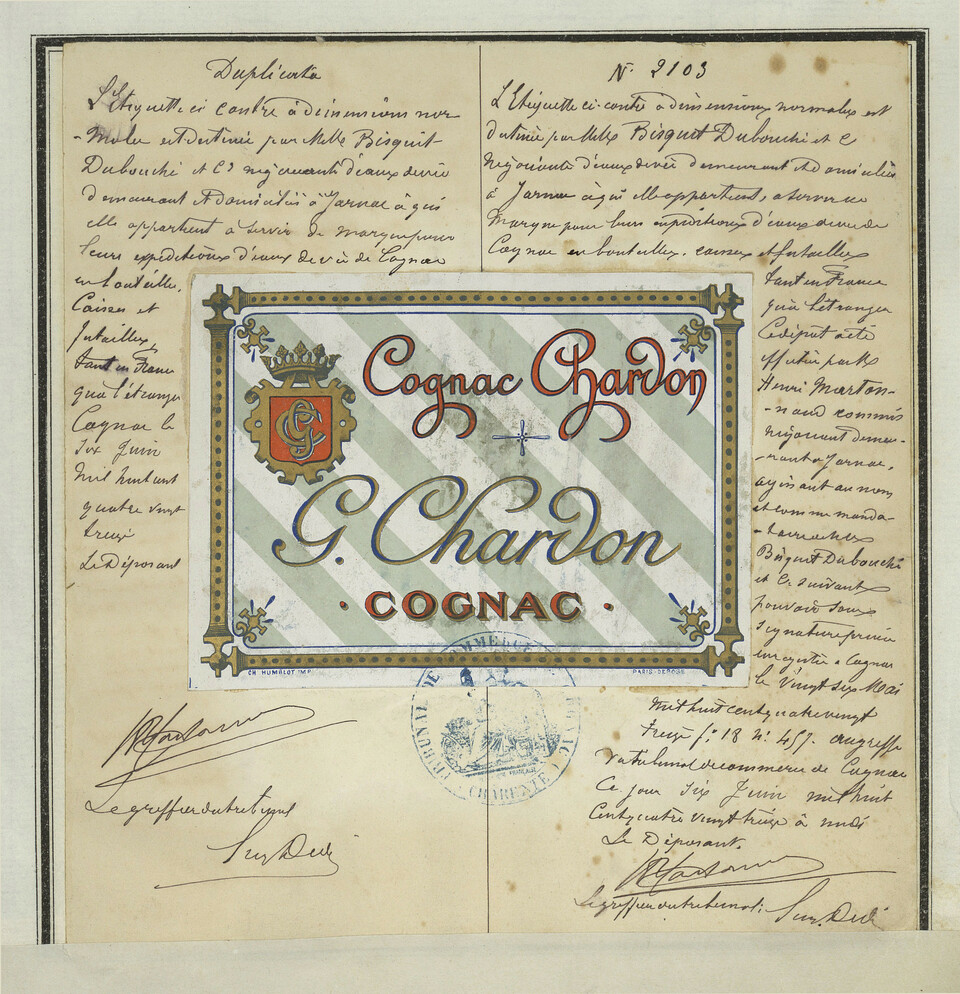 Duplicata
L'Etiquette ci contre à dimensions nor-
-male est destinée par MMs Bisquit-
Dubouché et Cie négociants d'eaux de vie
demeurant & domiciliés à Jarnac à qui
elle appartient à servir de marque pour
leurs expéditions d'eaux de vie de Cognac
en bouteilles,
Caisses et
futailles,
tant en France
qua l'étranger
Cognac le
Six Juin
Mil huit cent
quatre vingt
treize
Le Déposant
Le greffier du tribunal
N° 2103
L'Etiquette ci-contre à dimensions normales est
destinée par MMs Bisquit Dubouché et C
Négociants d'eaux de vie demeurant & domiciliés
à Jarnac à qui elle appartient, à servir de
Marque pour leurs expéditions d'eaux de vie de
Cognac en bouteilles, caisses et futailles
tant en France
qu'à l'étranger
Ce dépôt a été
effectué par M
Henri Marton-
-naud commis
négociant demeu-
-rant à Jarnac,
agissant au nom
et comme manda-
-taire de MM
Bisquit Dubouché
et Cie suivant
pouvoir sous
signature privée
enregistré à Cognac
le vingt six Mai
mil huit cent quatre vingt
treize f° 18 n° 457. au greffe
du tribunal de commerce de Cognac
Ce jour Six Juin mil huit
Cent quatre vingt treize à midi
Le Déposant.
Le greffier du tribunal
Cognac Chardon
CC
G. Chardon
• COGNAC •
CH. HUMBLOT IMP.
PARIS-DEPOSE
TRIBUNAL DE COMMERCE
CHARENTE